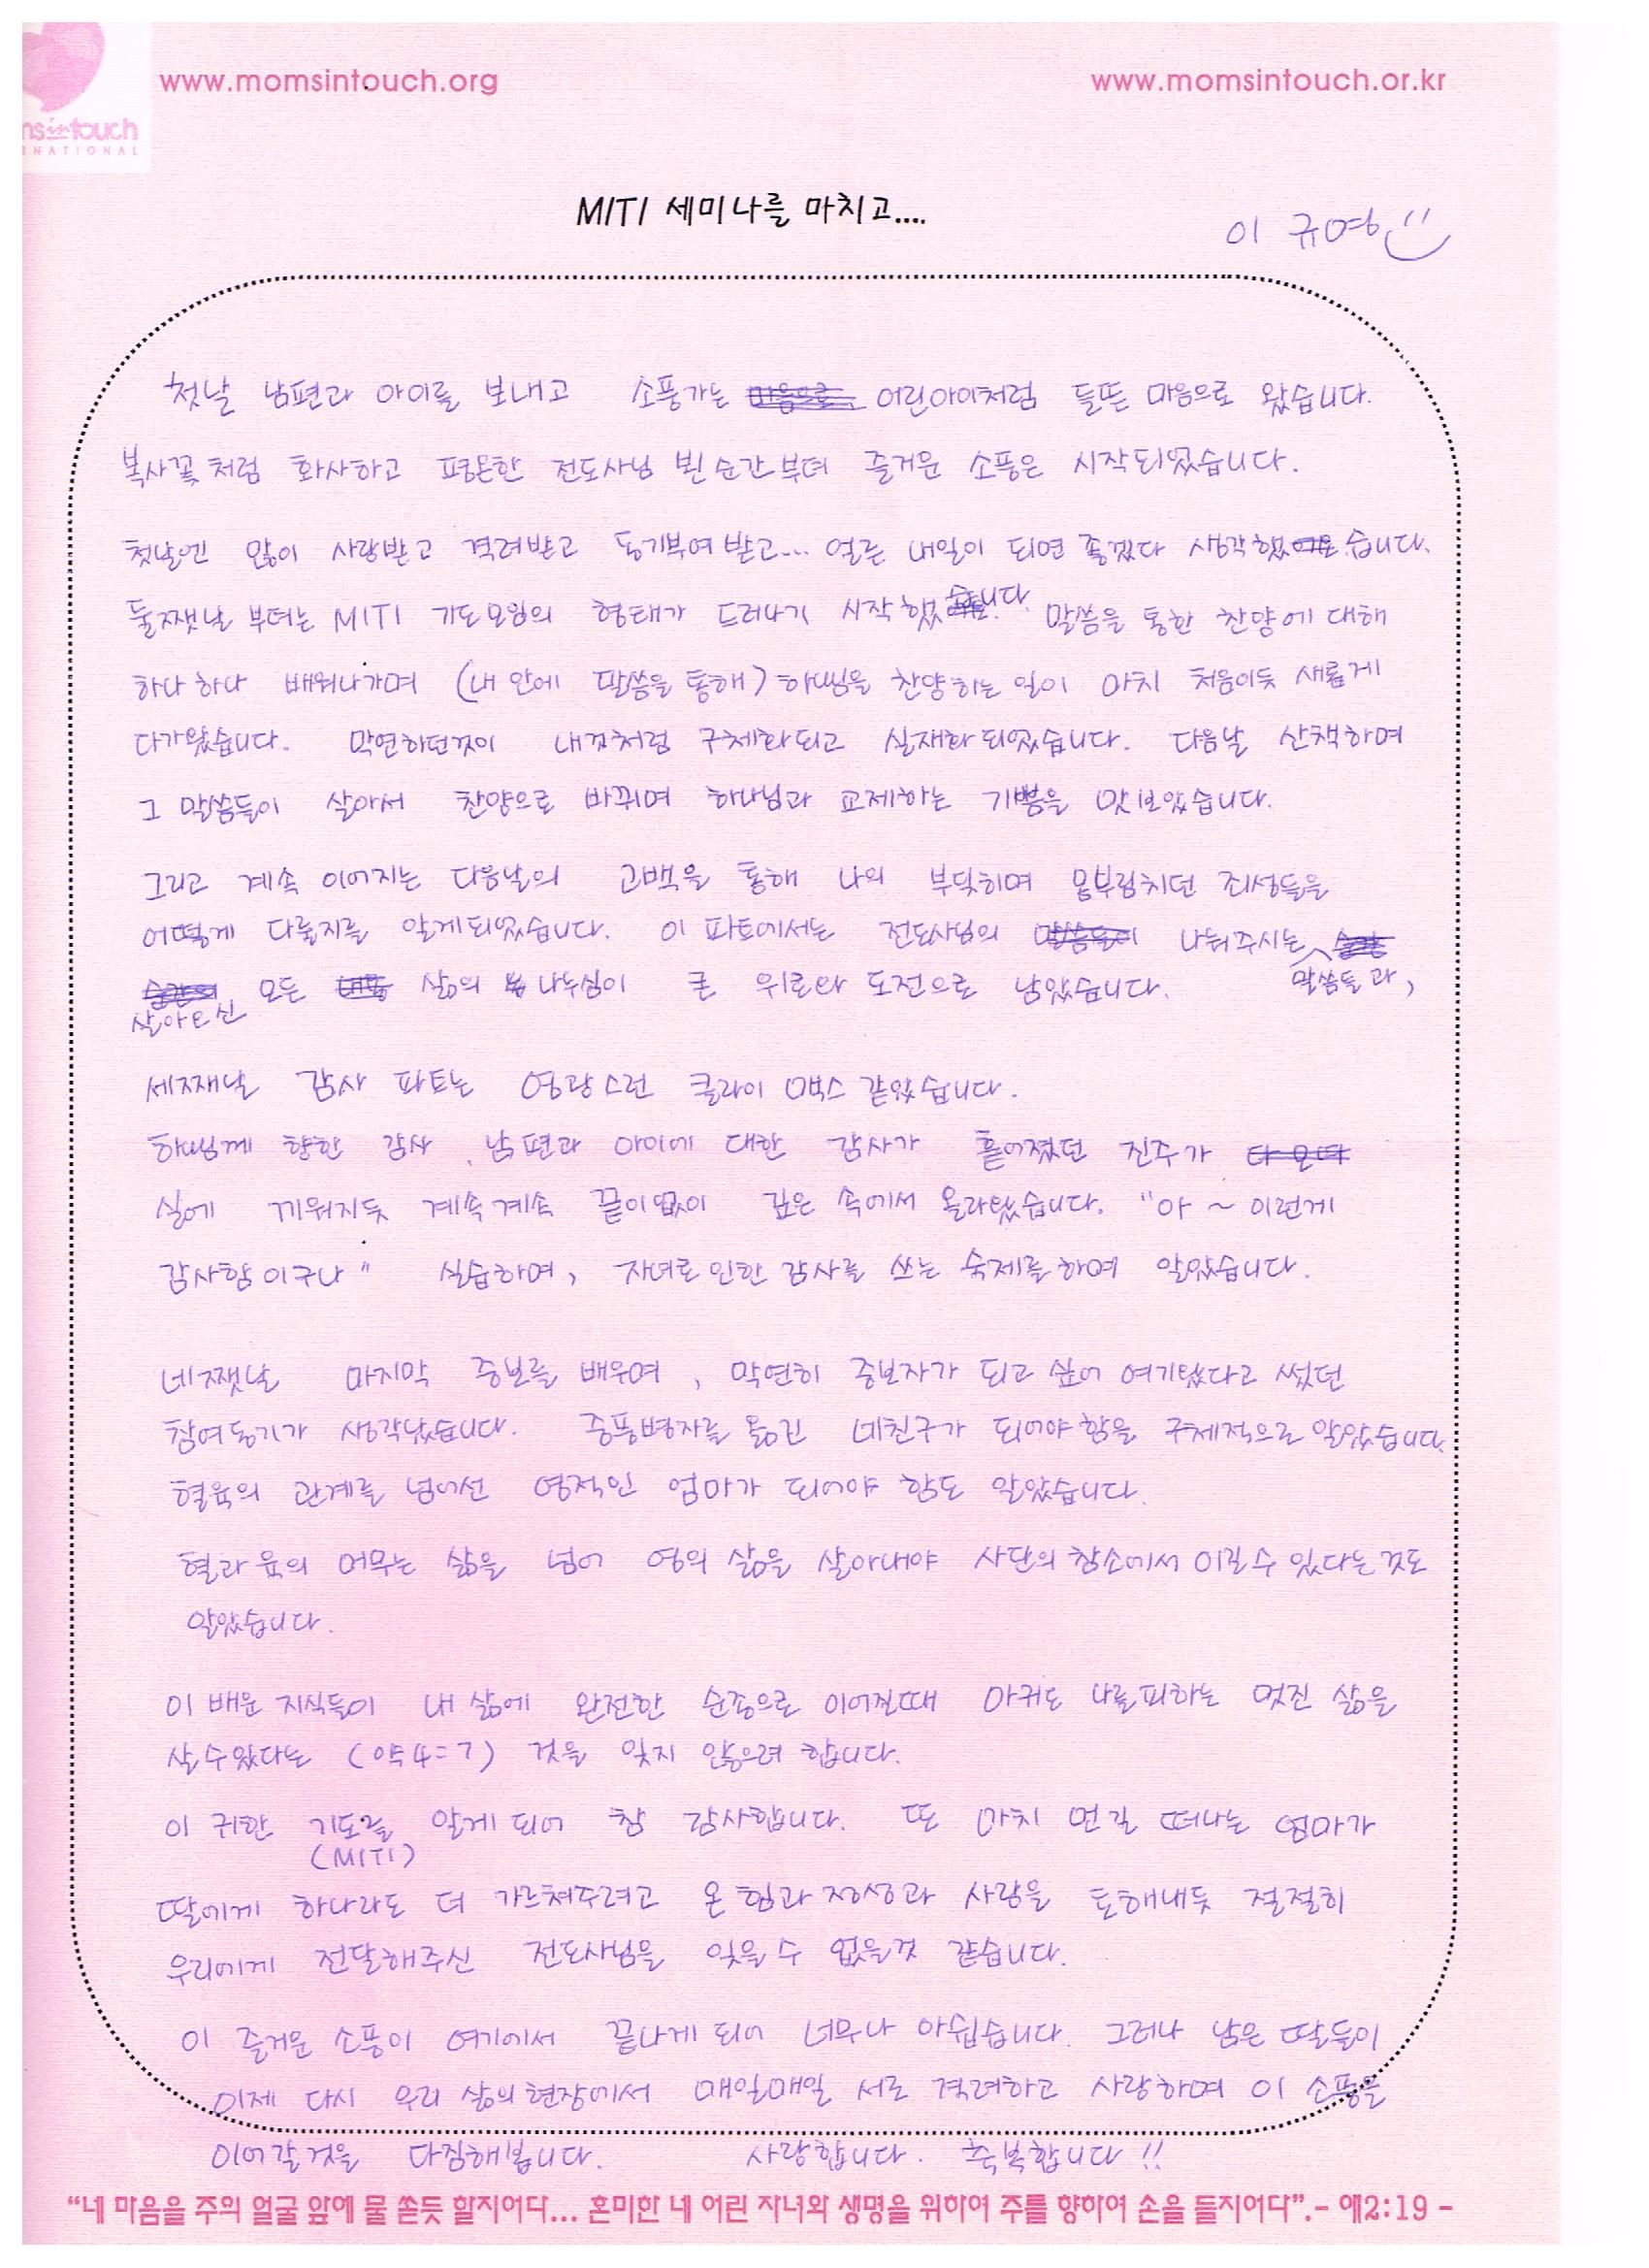 www.momsintouch.org
www.momsintouch.or.kr
ms in touch
RNATIONAL
MITI 세미나를 마치고....
이 규영
첫날 남편과 아이를 보내고 소풍가는 어린아이처럼 들뜬 마음으로 왔습니다.
복사꽃처럼 화사하고 평온한 전도사님 뵌 순간부터 즐거운 소풍은 시작되었습니다.
첫날엔 많이 사랑받고 격려받고 동기부여 받고... 얼른 내일이 되면 좋겠다 생각했습니다.
둘쨋날 부터는 MITI 기도모임의 형태가 드러나기 시작했습니다. 말씀을 통한 찬양에 대해
하나 하나 배워나가며 (내 안에 말씀을 통해) 하나님을 찬양하는 일이 마치 처음이듯 새롭게
다가왔습니다. 막연하던것이 내것처럼 구체화되고 실재화 되었습니다. 다음날 산책하며
그 말씀들이 살아서 찬양으로 바뀌며 하나님과 교제하는 기쁨을 맛보았습니다.
그리고 계속 이어지는 다음날의 고백을 통해 나의 부딪히며 몸부림치던 죄성들을
어떻게 다룰지를 알게되었습니다. 이 파트에서는 전도사님의 나눠주시는
말씀들과,
살아오신 모든 삶의 나누심이 큰 위로와 도전으로 남았습니다.
세째날 감사 파트는 영광스런 클라이막스 같았습니다.
하나님께 향한 감사, 남편과 아이에 대한 감사가 흩어졌던 진주가
실에 끼워지듯 계속계속 끝이없이 깊은 속에서 올라왔습니다. "아 ~ 이런게
감사함이구나" 실습하며, 자녀로인한 감사를 쓰는 숙제를하며 알았습니다.
네쨋날 마지막 중보를 배우며, 막연히 중보자가 되고 싶어 여기왔다고 썼던
참여동기가 생각났습니다. 중풍병자를 옮긴 네친구가 되어야함을 구체적으로 알았습니다.
혈육의 관계를 넘어선 영적인 엄마가 되어야 함도 알았습니다.
혈과 육의 머무는 삶을 넘어 영의 삶을 살아내야 사단의 참소에서 이길수 있다는 것도
알았습니다.
이 배운 지식들이 내 삶에 완전한 순종으로 이어질때 마귀도 나를피하는 멋진 삶을
살수있다는 (약4=7) 것을 잊지 않으려 합니다.
이 귀한 기도를 알게 되어 참 감사합니다. 또 마치 먼길 떠나는 엄마가
(MITI)
딸에게 하나라도 더 가르쳐주려고 온 힘과 정성과 사랑을 토해내듯 절절히
우리에게 전달해주신 전도사님을 잊을 수 없을것 같습니다.
이 즐거운 소풍이 여기에서 끝나게 되어 너무나 아쉽습니다. 그러나 남은 딸들이
이제 다시 우리 삶의 현장에서 매일매일 서로 격려하고 사랑하며 이 소풍을
이어갈것을 다짐해봅니다. 사랑합니다. 축복합니다!!
“네 마음을 주의 얼굴 앞에 물 쏟듯 할지어다... 혼미한 네 어린 자녀와 생명을 위하여 주를 향하여 손을 들지어다”.- 애2:19 -